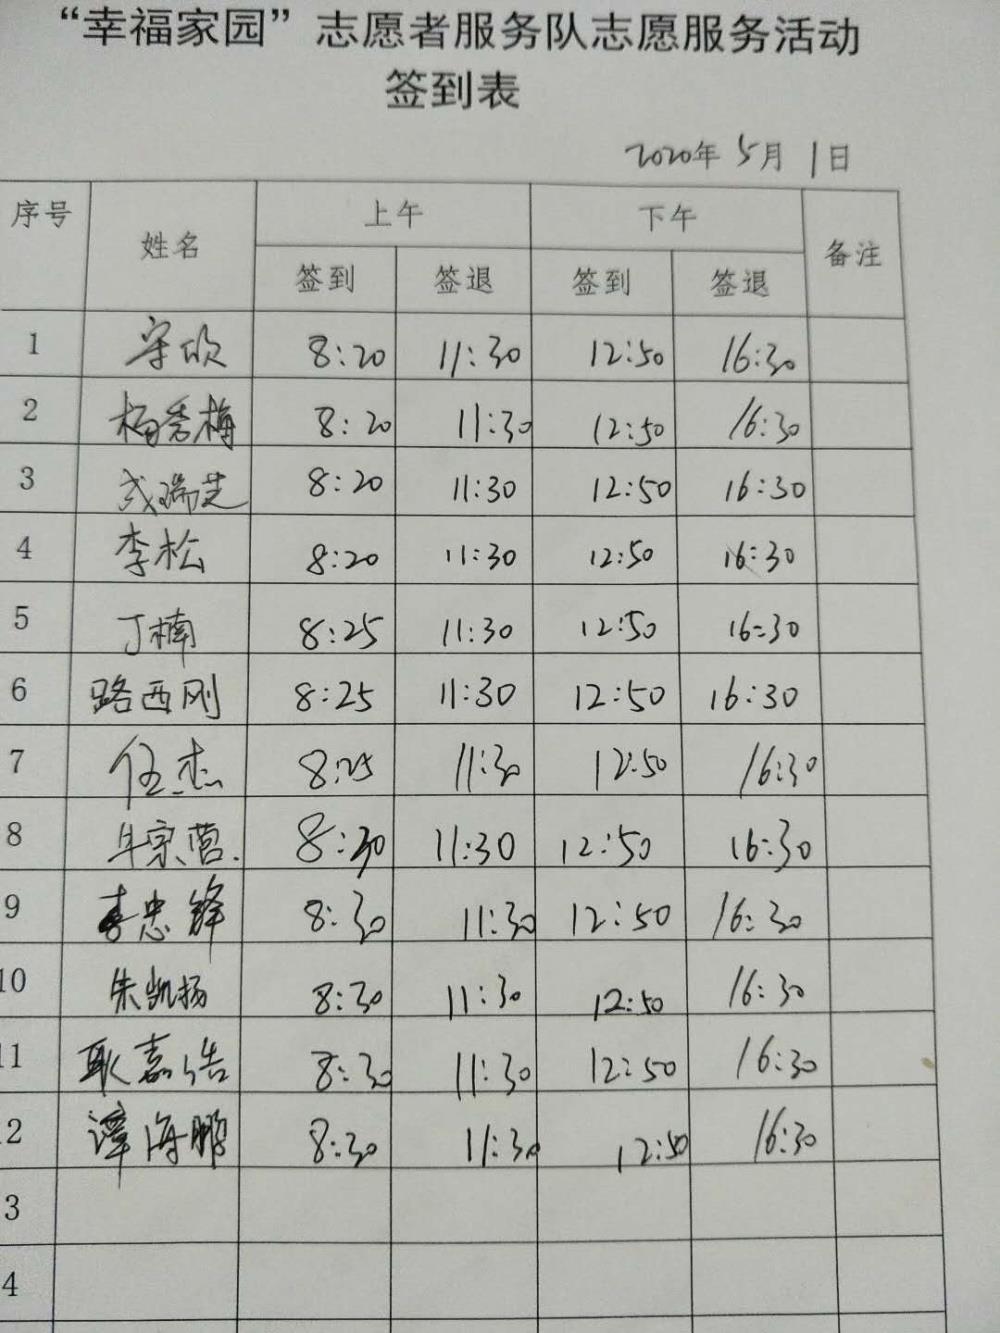 “幸福家园”志愿者服务队志愿服务活动
签到表
2020年 5月 1日
序号 姓名 上午 下午 备注
签到 签退 签到 签退
1 8:20 11:30 12:50 16:30
2 杨秀梅 8:20 11:30 12:50 16:30
3 瑞芝 8:20 11:30 12:50 16:30
4 李松 8:20 11:30 12:50 16:30
5 丁楠 8:25 11:30 12:50 16:30
6 路西刚 8:25 11:30 12:50 16:30
7 任杰 8:25 11:30 12:50 16:30
8 牛宗营 8:30 11:30 12:50 16:30
9 李忠锋 8:30 11:30 12:50 16:30
10 朱凯扬 8:30 11:30 12:50 16:30
11 耿嘉浩 8:30 11:30 12:50 16:30
12 谭海鹏 8:30 11:30 12:50 16:30
3
4